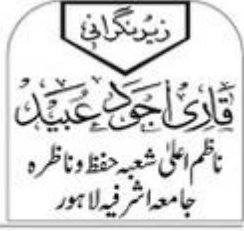 زیرِنگرانی
قاری اجود عبید
ناظم اعلیٰ شعبہ حفظ و ناظرہ
جامعہ اشرفیہ لاہور